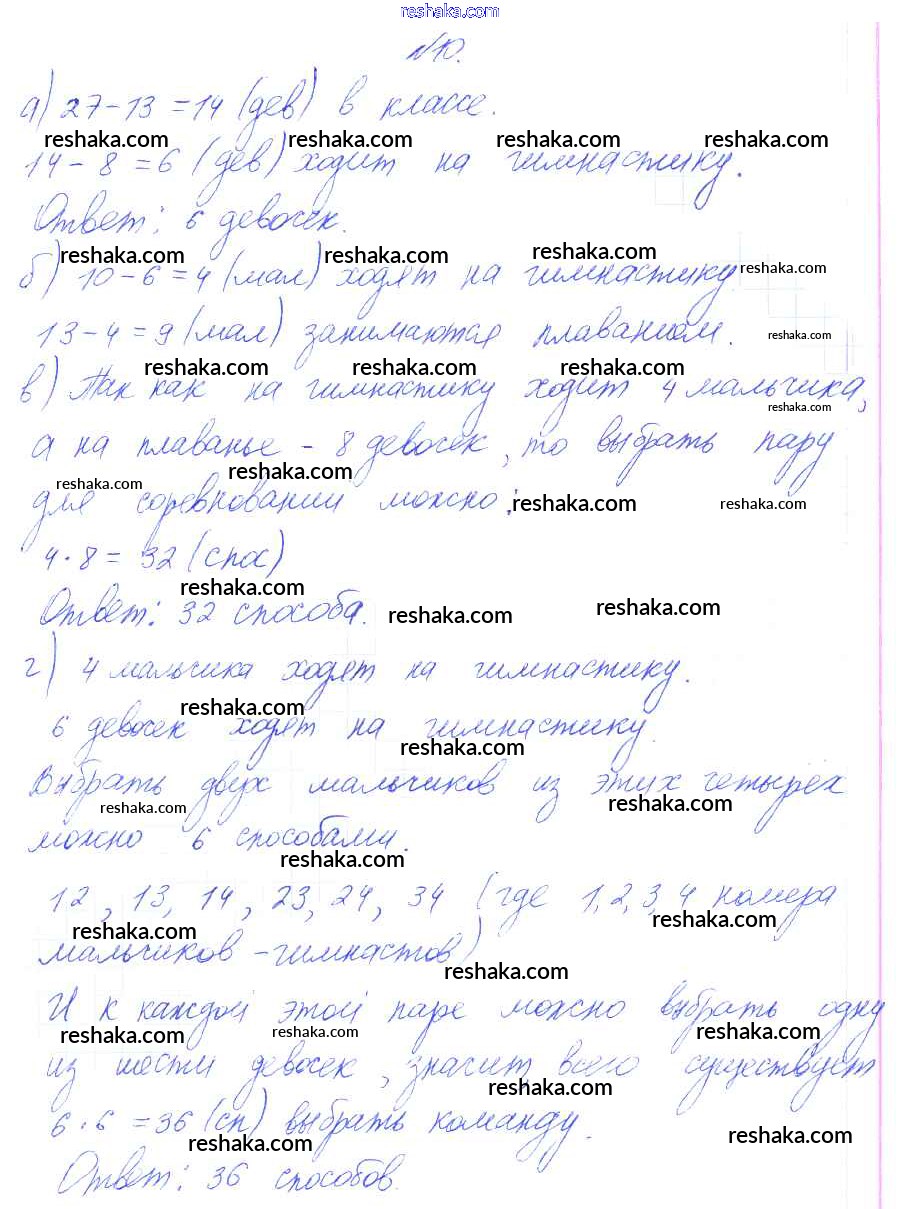 reshaka.com
№10.
а) 27-13=14 (дев) в классе.
reshaka.com reshaka.com reshaka.com reshaka.com
14-8=6 (дев) ходит на гимнастику.
Ответ: 6 девочек.
reshaka.com reshaka.com reshaka.com reshaka.com
б) 10-6=4 (мал) ходят на гимнастику.
13-4=9 (мал) занимаются плаванием.
reshaka.com
reshaka.com reshaka.com reshaka.com
в) Так как на гимнастику ходит 4 мальчика,
reshaka.com
а на плаванье - 8 девочек, то выбрать пару
reshaka.com reshaka.com
для соревновании можно:
reshaka.com reshaka.com
4·8= 32 (спос)
reshaka.com
Ответ: 32 способа.
reshaka.com reshaka.com
г) 4 мальчика ходят на гимнастику.
reshaka.com
6 девочек ходят на гимнастику.
reshaka.com
Выбрать двух мальчиков из этих четырёх
reshaka.com reshaka.com
можно 6 способами.
reshaka.com
12, 13, 14, 23, 24, 34 (где 1,2,3,4 номера
reshaka.com reshaka.com
мальчиков-гимнастов)
reshaka.com
И к каждой этой паре можно выбрать одну
reshaka.com reshaka.com reshaka.com
из шести девочек, значит, всего существует
reshaka.com
6·6=36 (сп) выбрать команду.
reshaka.com reshaka.com
Ответ: 36 способов.